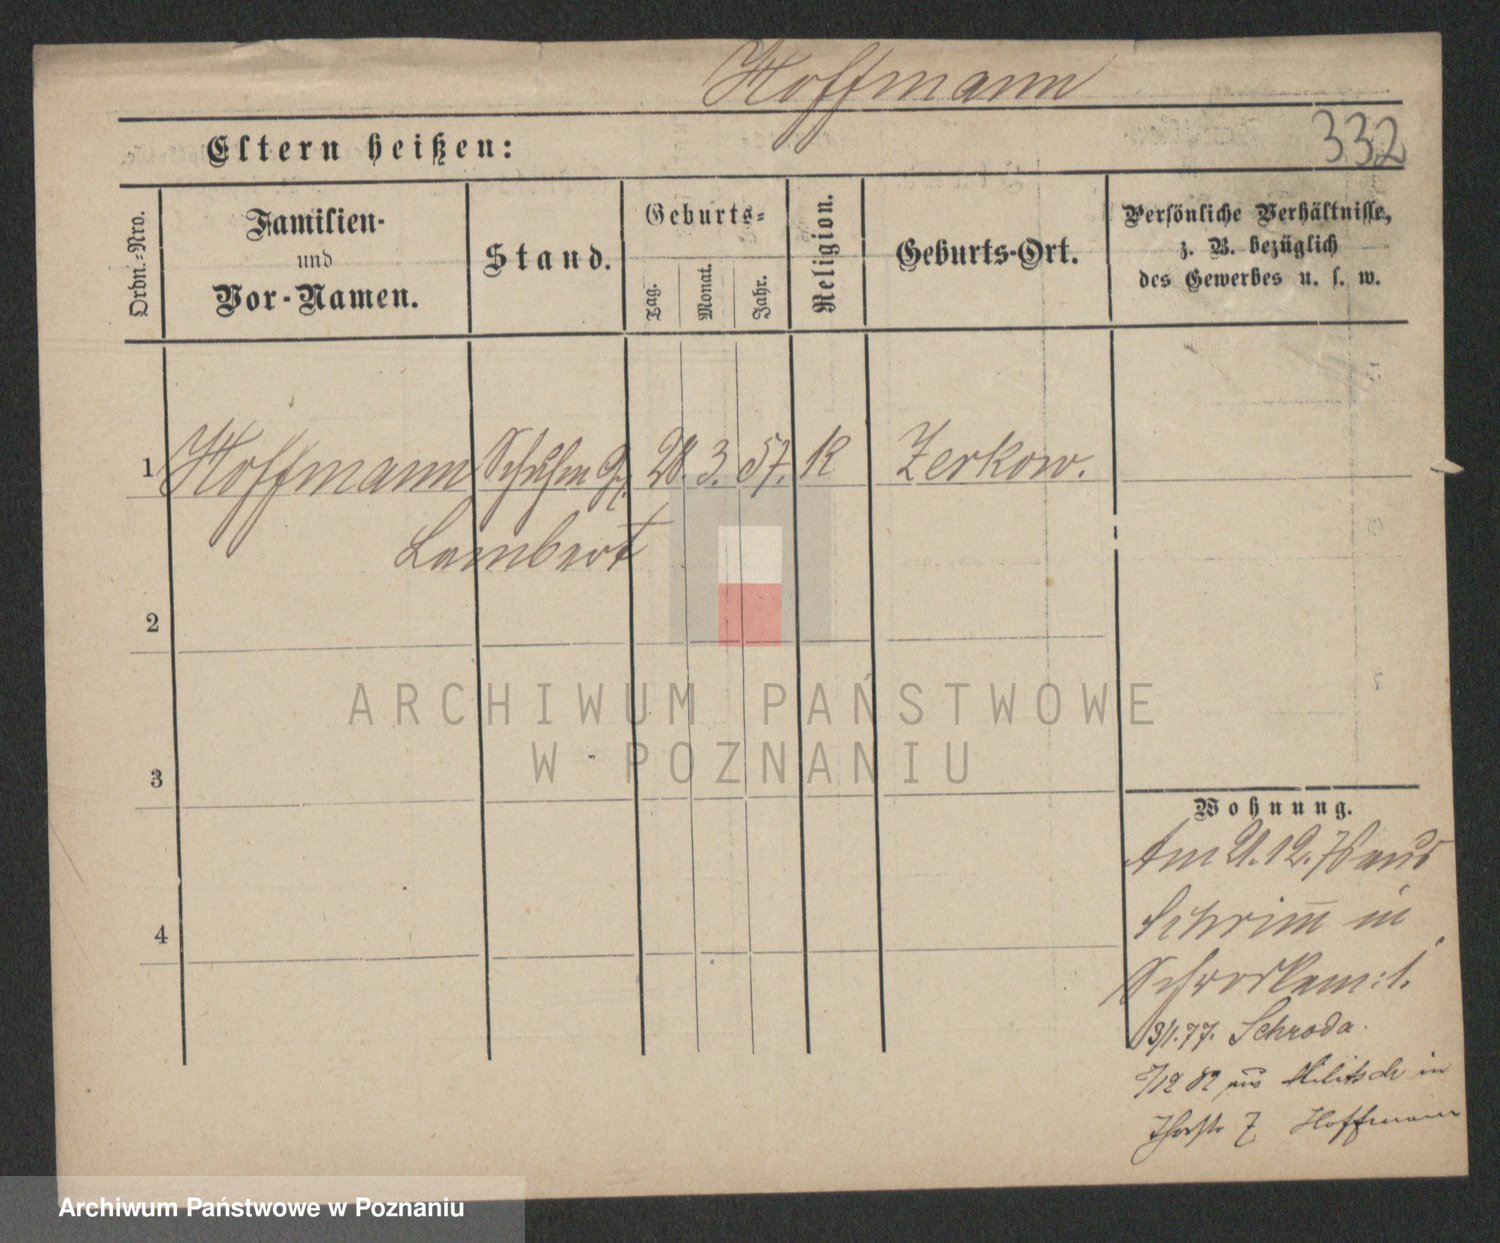 Hoffmann
332
Eltern heißen:
Ordn.-Nro.
Familien-
und
Vor-Namen.
Stand.
Geburts-
Tag.
Monat.
Jahr.
Religion.
Geburts-Ort.
Persönliche Verhältnisse,
z. B. bezüglich
des Gewerbes u. s. w.
1 Hoffmann Schuhm 28. 3. 57. K Zerkow.
Lambert
2
ARCHIWUM PAŃSTWOWE
W POZNANIU
3
Wohnung.
Am 21.12.76 aus
Schrimm in
4
3/1.77. Schroda.
7/12 82 aus Militsch in
Thorstr 7 Hoffmann
Archiwum Państwowe w Poznaniu